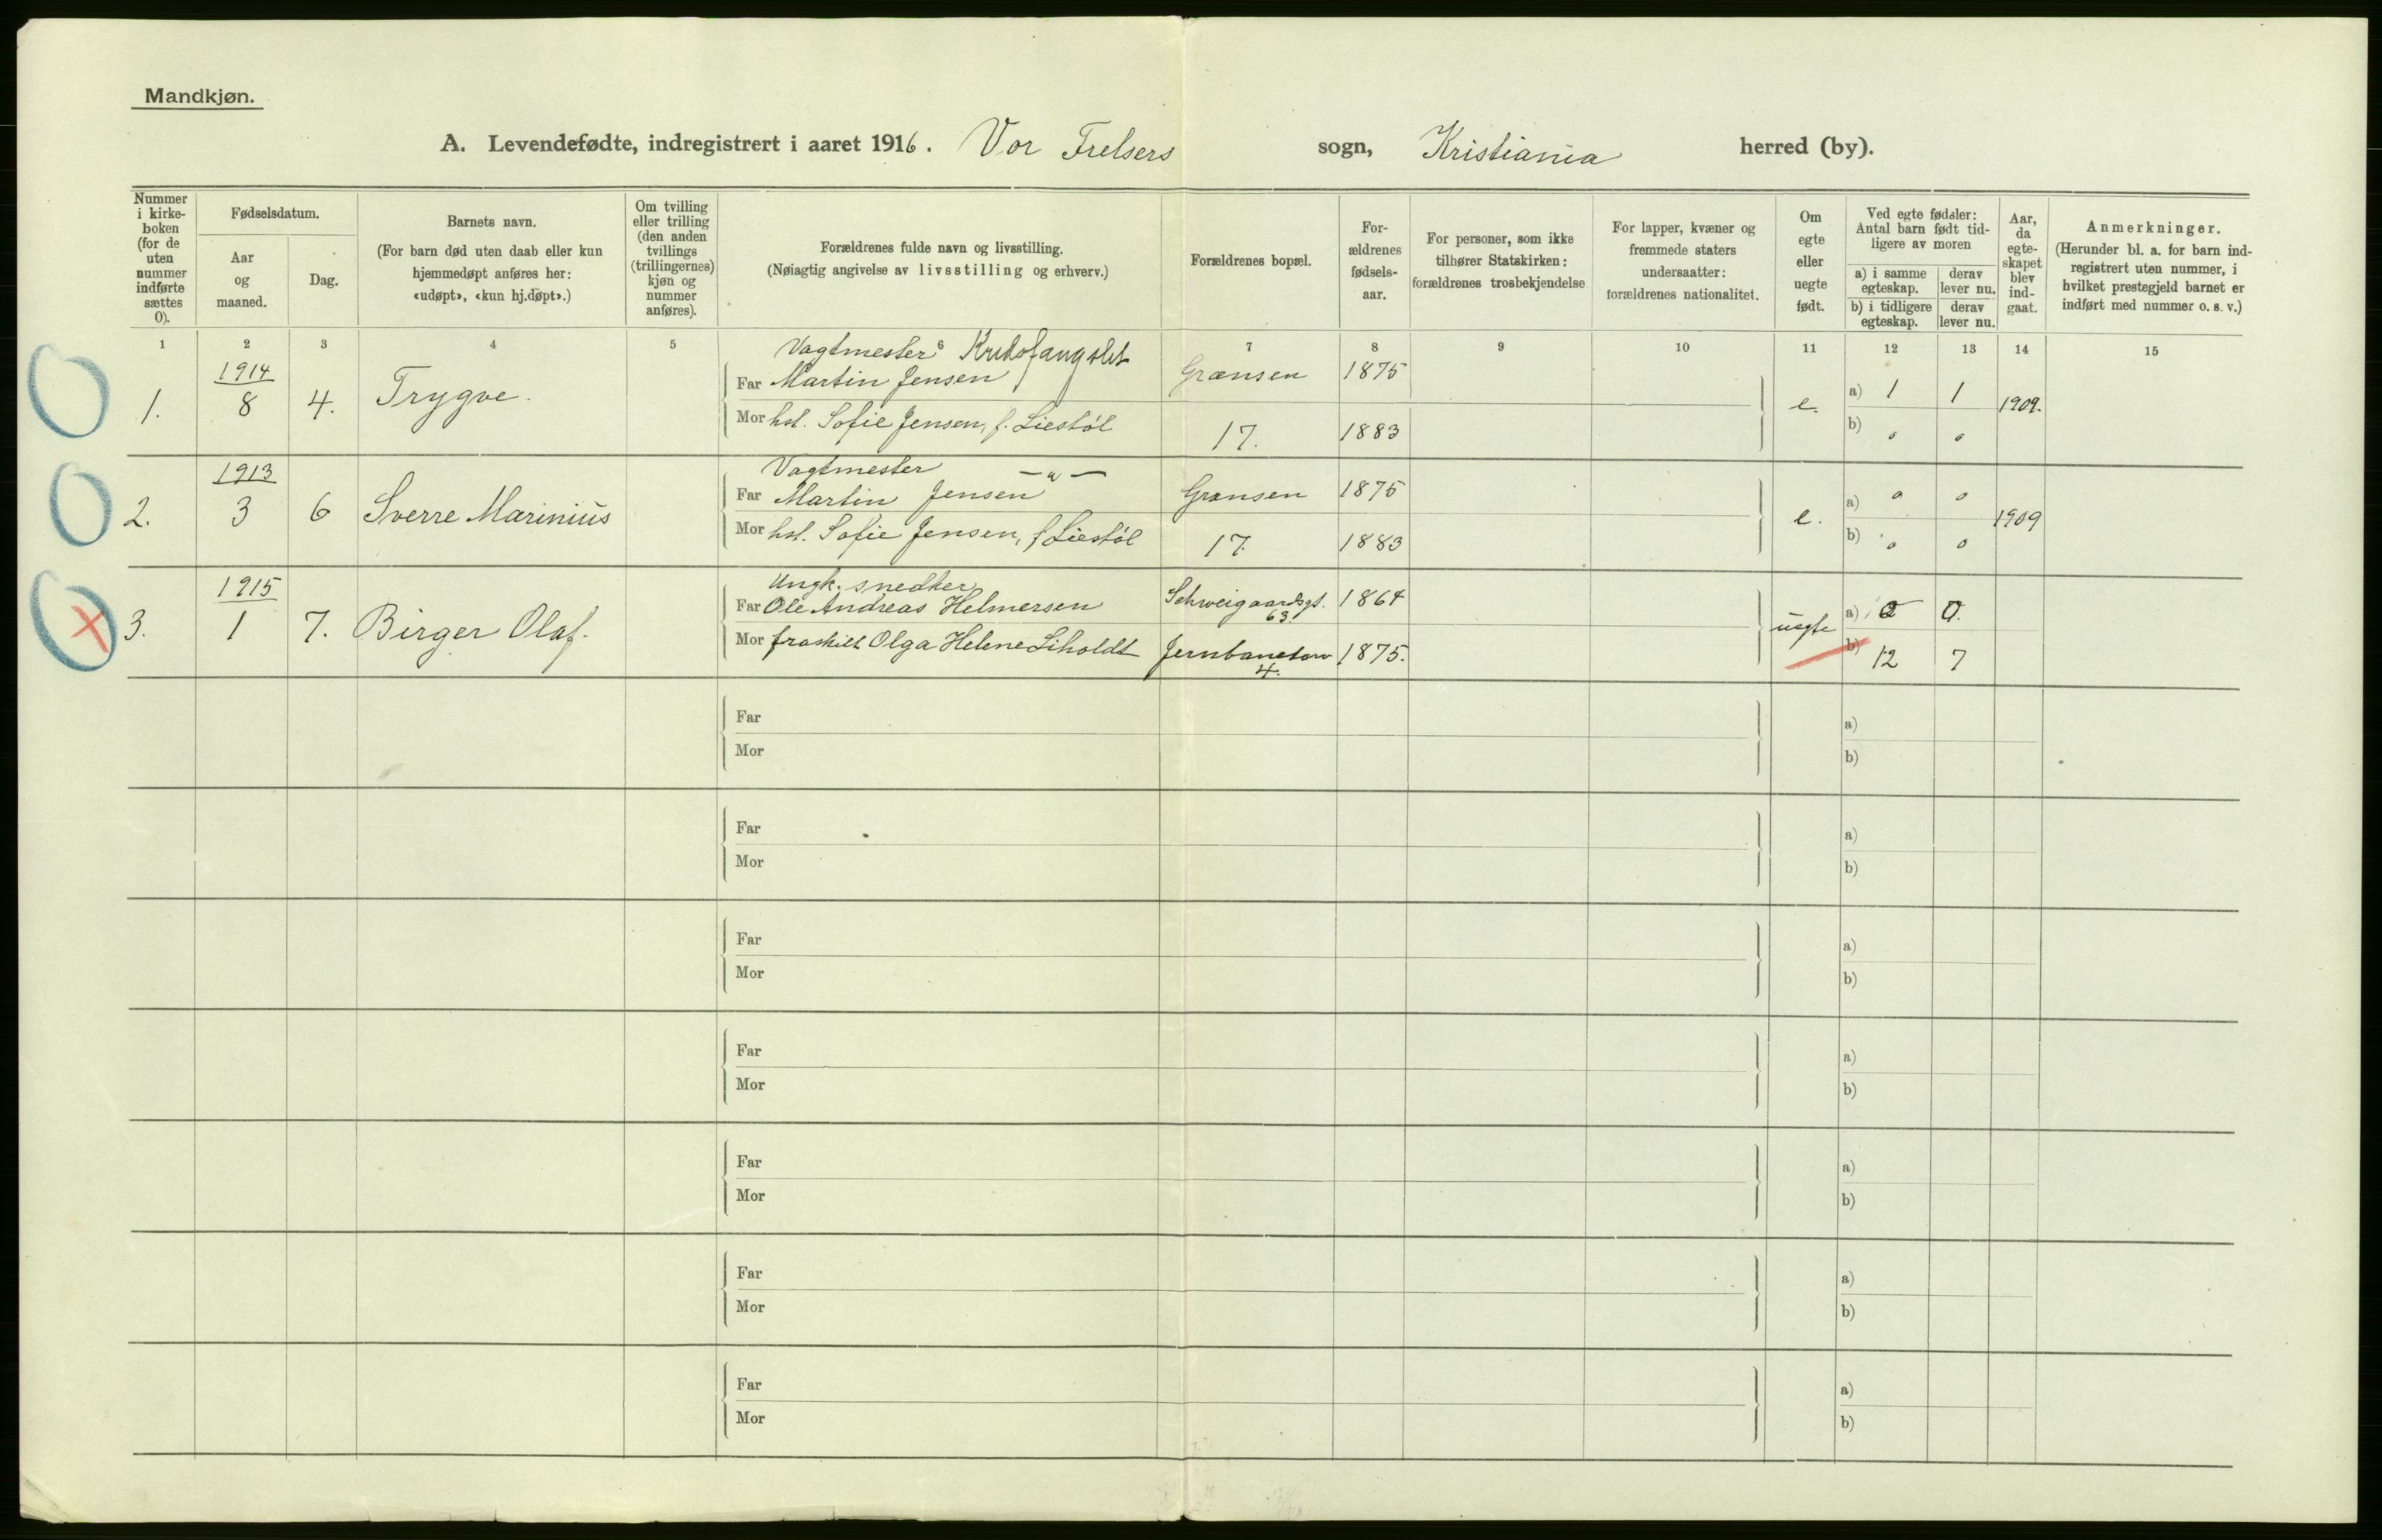 Mandkjøn.
A. Levendefødte, indregistrert i aaret 1916. Vor Frelsers sogn, Kristiania herred (by).
Nummer i kirke-boken (for de uten nummer indførte sættes 0).
Fødselsdatum.
Aar og maaned.
Dag.
Barnets navn.
(For barn død uten daab eller kun hjemmedøpt anføres her: «udøpt», «kun hj.døpt».)
Om tvilling eller trilling (den anden tvillings (trillingernes) kjøn og nummer anføres).
Forældrenes fulde navn og livsstilling.
(Nøiagtig angivelse av livsstilling og erhverv.)
Forældrenes bopæl.
For-ældrenes fødsels-aar.
For personer, som ikke tilhører Statskirken: forældrenes trosbekjendelse
For lapper, kvæner og fremmede staters undersaatter: forældrenes nationalitet.
Om egte eller uegte født.
Ved egte fødsler: Antal barn født tid-ligere av moren
a) i samme egteskap. derav lever nu.
b) i tidligere egteskap. derav lever nu.
Aar, da egte-skapet blev ind-gaat.
Anmerkninger.
(Herunder bl. a. for barn ind-registrert uten nummer, i hvilket prestegjeld barnet er indført med nummer o. s. v.)
1 2 3 4 5 6 7 8 9 10 11 12 13 14 15
Vagtmester
1914
1. 8 4. Trygve. Far Martin Jensen Grænsen 1875 e. a) 1 1 1909.
Mor hst. Sofie Jensen, f. Liestöl 17. 1883 b) 0 0
1913 Vagtmester —"—
2. 3 6 Sverre Marinius Far Martin Jensen Grænsen 1875 e. a) 0 0 1909
Mor hst. Sofie Jensen, f Liestöl 17. 1883 b) 0 0
1915 Ungk. snedker
3. 1 7. Birger Olaf. Far Ole Andreas Helmersen Schweigaardsgt. 63. 1864 uegte a) 0 0.
Mor fraskilt Olga Helene Liholdt 4. 1875. b) 12 7
Far a)
Mor b)
Far a)
Mor b)
Far a)
Mor b)
Far a)
Mor b)
Far a)
Mor b)
Far a)
Mor b)
Far a)
Mor b)